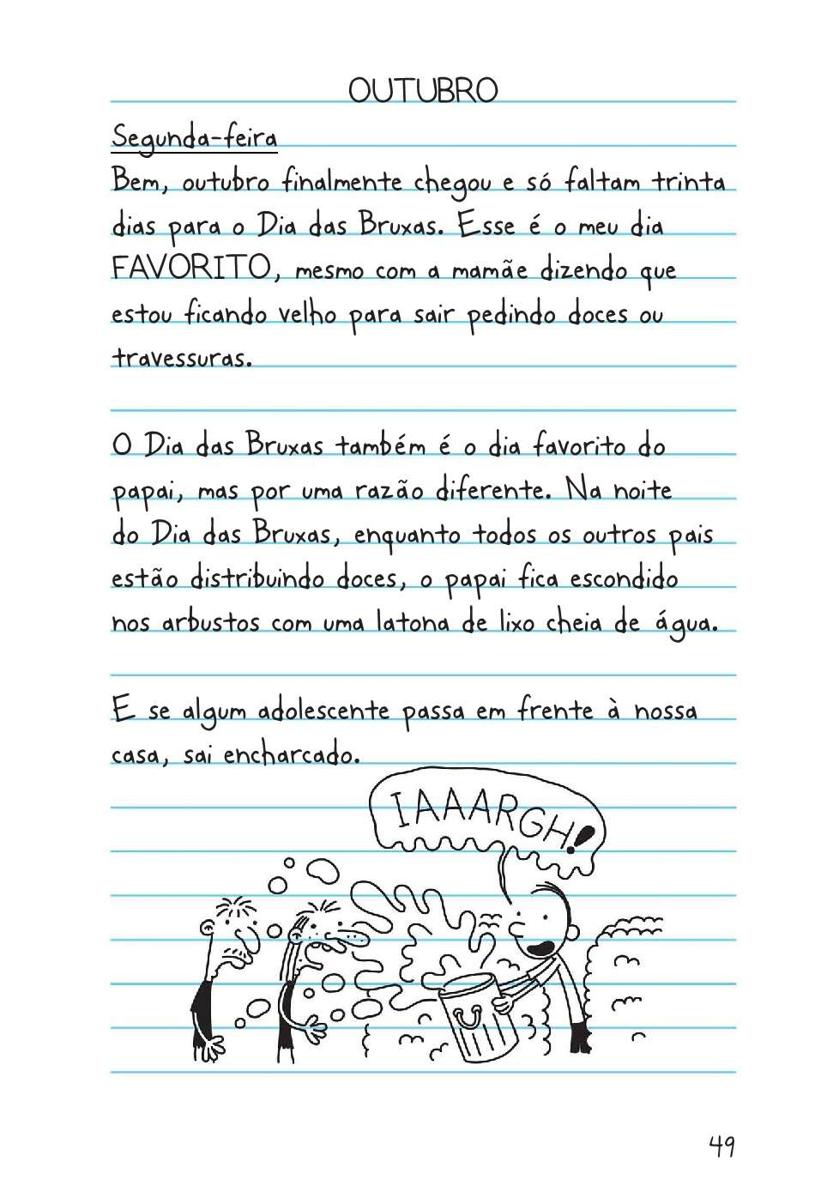 OUTUBRO
Segunda-feira
Bem, outubro finalmente chegou e só faltam trinta
dias para o Dia das Bruxas. Esse é o meu dia
FAVORITO, mesmo com a mamãe dizendo que
estou ficando velho para sair pedindo doces ou
travessuras.
O Dia das Bruxas também é o dia favorito do
papai, mas por uma razão diferente. Na noite
do Dia das Bruxas, enquanto todos os outros pais
estão distribuindo doces, o papai fica escondido
nos arbustos com uma latona de lixo cheia de água.
E se algum adolescente passa em frente à nossa
casa, sai encharcado.
IAAARGH!
49